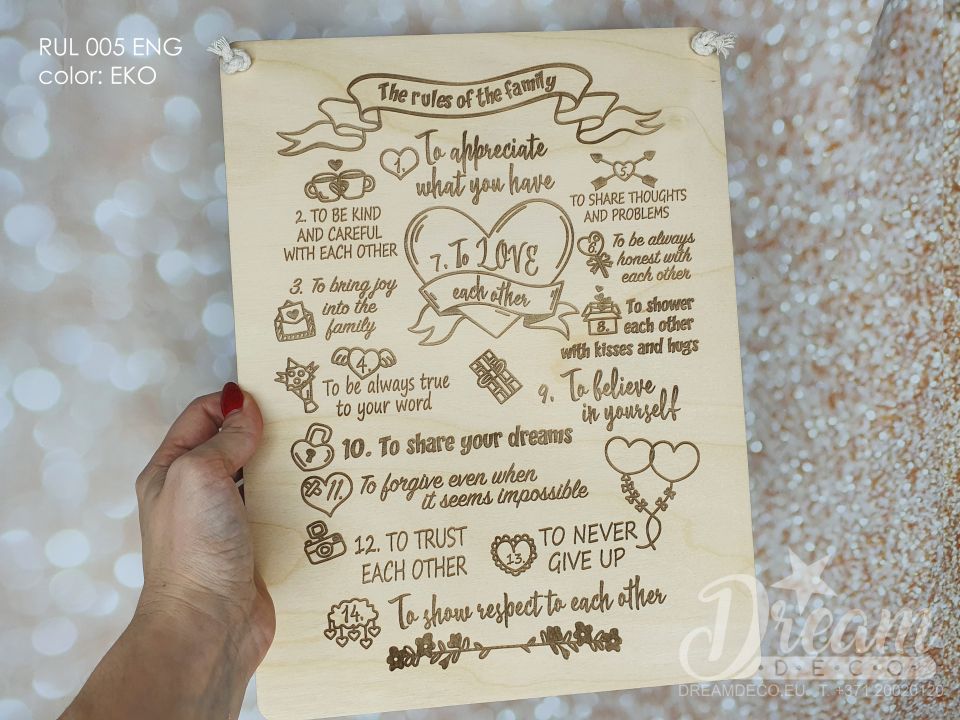 RUL 005 ENG
color: EKO
The rules of the family
1. To appreciate
what you have
2. TO BE KIND
AND CAREFUL
WITH EACH OTHER
3. To bring joy
into the
family
4.
To be always true
to your word
5.
TO SHARE THOUGHTS
AND PROBLEMS
6. To be always
honest with
each other
7. To LOVE
each other
8. To shower
each other
with kisses and hugs
9. To believe
in yourself
10. To share your dreams
11. To forgive even when
it seems impossible
12. TO TRUST
EACH OTHER
13. TO NEVER
GIVE UP
14. To show respect to each other
Dream
DECO
DREAMDECO.EU T. +371 20020120